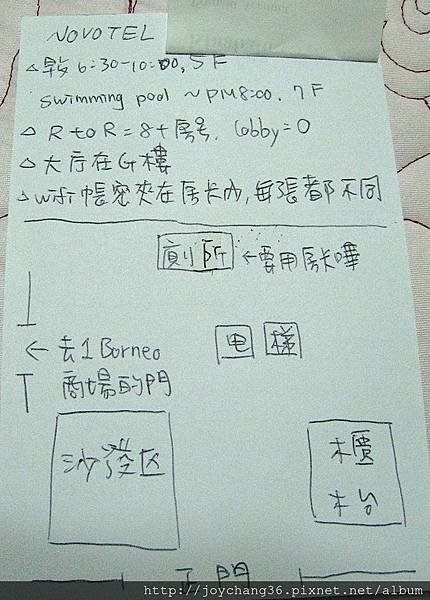 NOVOTEL
△早飯 6:30-10:00, 5F
swimming pool ~PM8:00. 7F
△ R to R = 8+房号, lobby=0
△大厅在G樓
△wifi帳密夾在房卡內,每張都不同
廁所 ←要用房卡嗶
电 梯
← 去1Borneo
商場的門
沙發区 櫃
木台
門
http://joychang36.pixnet.net/album